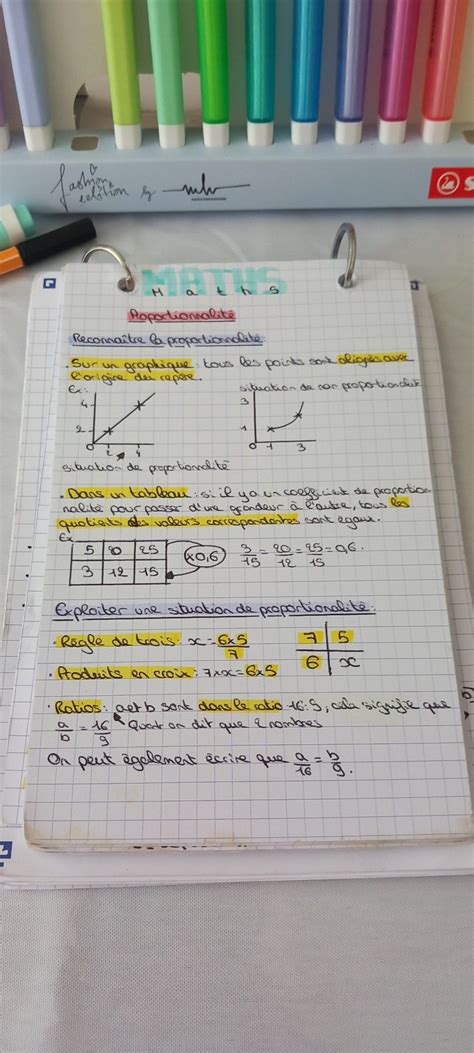 fashion
edition by
MATHS
Maths
Proportionnalité
Reconnaître la proportionnalité
. Sur un graphique : tous les points sont alignés avec
l'origine du repère.
Ex:
situation de non proportionnalité
4
2
0 2 4
3
1
0 1 3
situation de proportionnalité
. Dans un tableau : si il y a un coefficient de proportion-
nalité pour passer d'une grandeur à l'autre, tous les
quotients des valeurs correspondantes sont égaux.
Ex
5 20 25
3 12 15
×0,6
3/15 = 20/12 = 25/15 = 0,6.
Exploiter une situation de proportionalité :
. Règle de trois : x = 6×5/7
7 5
6 x
. Produits en croix : 7×x = 6×5
. Ratios : a et b sont dans le ratio 16:9, cela signifie que
a/b = 16/9 Quand on dit que 2 nombres
On peut également écrire que a/16 = b/9.